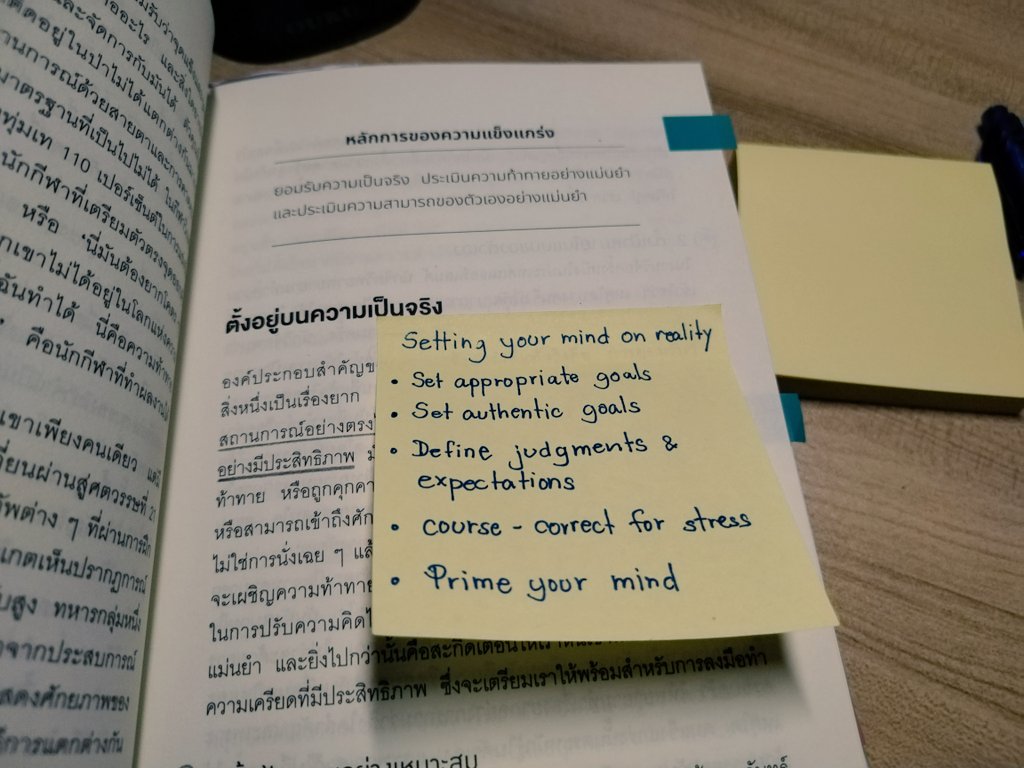 ไรับว่าจุดแข็ง
และจัดการกับมันได้
ติดอยู่ในป่าไม่ได้แตกต่าง
านการณ์ด้วยสายตาและการ
มาตรฐานที่เป็นไปไม่ได้
ทุ่มเท 110 เปอร์เซ็นต์ในการ
นักกีฬาที่เตรียมตัวตรงจุด
หรือ 'นี่มันต้องยาก
กเขาไม่ได้อยู่ในโลกแห่ง
ฉันทำได้ นี่คือความท้าทาย
คือนักกีฬาที่ทำผลงาน
เขาเพียงคนเดียว แต่
ยนผ่านสู่ศตวรรษที่ 21
พต่าง ๆ ที่ผ่านการฝึก
เกตเห็นปรากฏการณ์
สูง ทหารกลุ่มหนึ่ง
จากประสบการณ์
สดงศักยภาพของ
การแตกต่างกัน
หลักการของความแข็งแกร่ง
ยอมรับความเป็นจริง ประเมินความท้าทายอย่างแม่นยำ
และประเมินความสามารถของตัวเองอย่างแม่นยำ
ตั้งอยู่บนความเป็นจริง
องค์ประกอบสำคัญข
สิ่งหนึ่งเป็นเรื่องยาก
สถานการณ์อย่างตรง
อย่างมีประสิทธิภาพ
ท้าทาย หรือถูกคุกคา
หรือสามารถเข้าถึงศัก
ไม่ใช่การนั่งเฉย ๆ แล้
จะเผชิญความท้าทาย
ในการปรับความคิด
แม่นยำ และยิ่งไปกว่านั้นคือสะกิดเตือนให้เรา
ความเครียดที่มีประสิทธิภาพ ซึ่งจะเตรียมเราให้พร้อมสำหรับการลงมือทำ
Setting your mind on reality
• Set appropriate goals
• Set authentic goals
• Define judgments &
expectations
• course - correct for stress
• Prime your mind